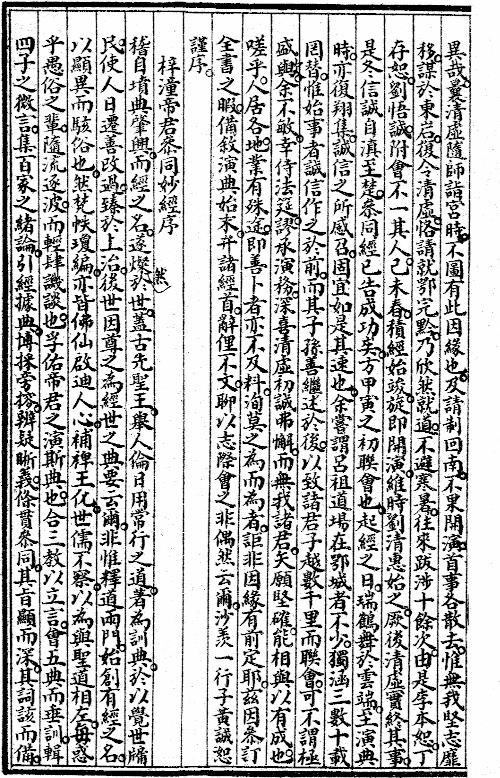 異哉曩清虛隨師詣宮時不圖有此因緣也及請制回南不果開演首事各散去惟無我堅志靡
移謀於東岩復令清虛恪請就鄂完黔乃欣然就道不避寒暑往來跋涉十餘次由是李本恕丁
存恕劉悟誠附會不一其人己未春積經始竣旋即開演維時劉清惠始之厥後清虛實終其事
是冬信誠自滇至楚叅同經已告成功矣方甲寅之初聯會也起經之日瑞鶴舞於雲端主演典
時亦復翔集誠信之所感召固宜如是其速也余嘗謂呂祖道場在鄂城者不少獨涵三數十載
罔替惟始事者誠信作之於前而其子孫善繼述於後以致諸君子越數千里而聯會可不謂極
盛與余不敏幸侍法筵謬承演務深喜清虛初誠弗懈而無我諸君矢願堅確能相與以有成也
嗟乎人居各地業有殊途即善卜者亦不及料洵莫之為而為者詎非因緣有前定耶茲因叅訂
全書之暇備敘演典始末弁諸經首辭俚不文聊以志際會之非偶然云爾沙羨一行子黃誠恕
謹序
梓潼帝君叅同妙經序
稽自墳典肇興而經之名遂燦然於世蓋古先聖王舉人倫日用常行之道著為訓典於以覺世牖
民使人日遷善改過臻於上治後世因尊之為經世之典要云爾非惟釋道兩門始創有經之名
以顯異而駭俗也然梵帙瓊編亦皆佛仙啟迪人心補裨王化世儒不察以為與聖道相左毋惑
乎愚俗之輩隨流逐波而輕肆譏談也孚佑帝君之演斯典也合三教以立言會五典而垂訓輯
四子之微言集百家之緒論引經據典博採旁搜辨疑晰義條貫叅同其旨顯而深其詞該而備